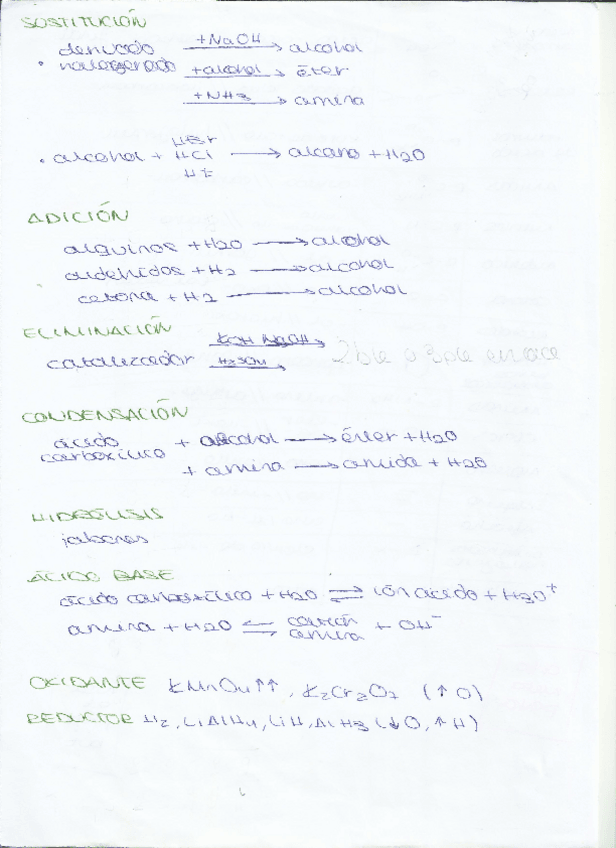 SOSTITUCIÓN
derivado +NaOH → alcohol
• halogenado +alcohol → éter
+NH3 → amina
HBr
• alcohol + HCl → alcano + H2O
HF
ADICIÓN
alquinos + H2O → alcohol
aldehidos + H2 → alcohol
cetona + H2 → alcohol
ELIMINACIÓN
KOH NaOH →
catalizador H2SO4 → 2ble o 3ple enlace
CONDENSACIÓN
ácido + alcohol → éster + H2O
carboxílico
+ amina → amida + H2O
HIDRÓLISIS
jabones
ÁCIDO BASE
ácido carboxílico + H2O ⇌ ión ácido + H3O+
amina + H2O ⇌ catión + OH-
amina
OXIDANTE KMnO4 ↑↑, K2Cr2O7 (↑ O)
REDUCTOR H2, LiAlH4, LiH, AlH3 (↓O, ↑H)